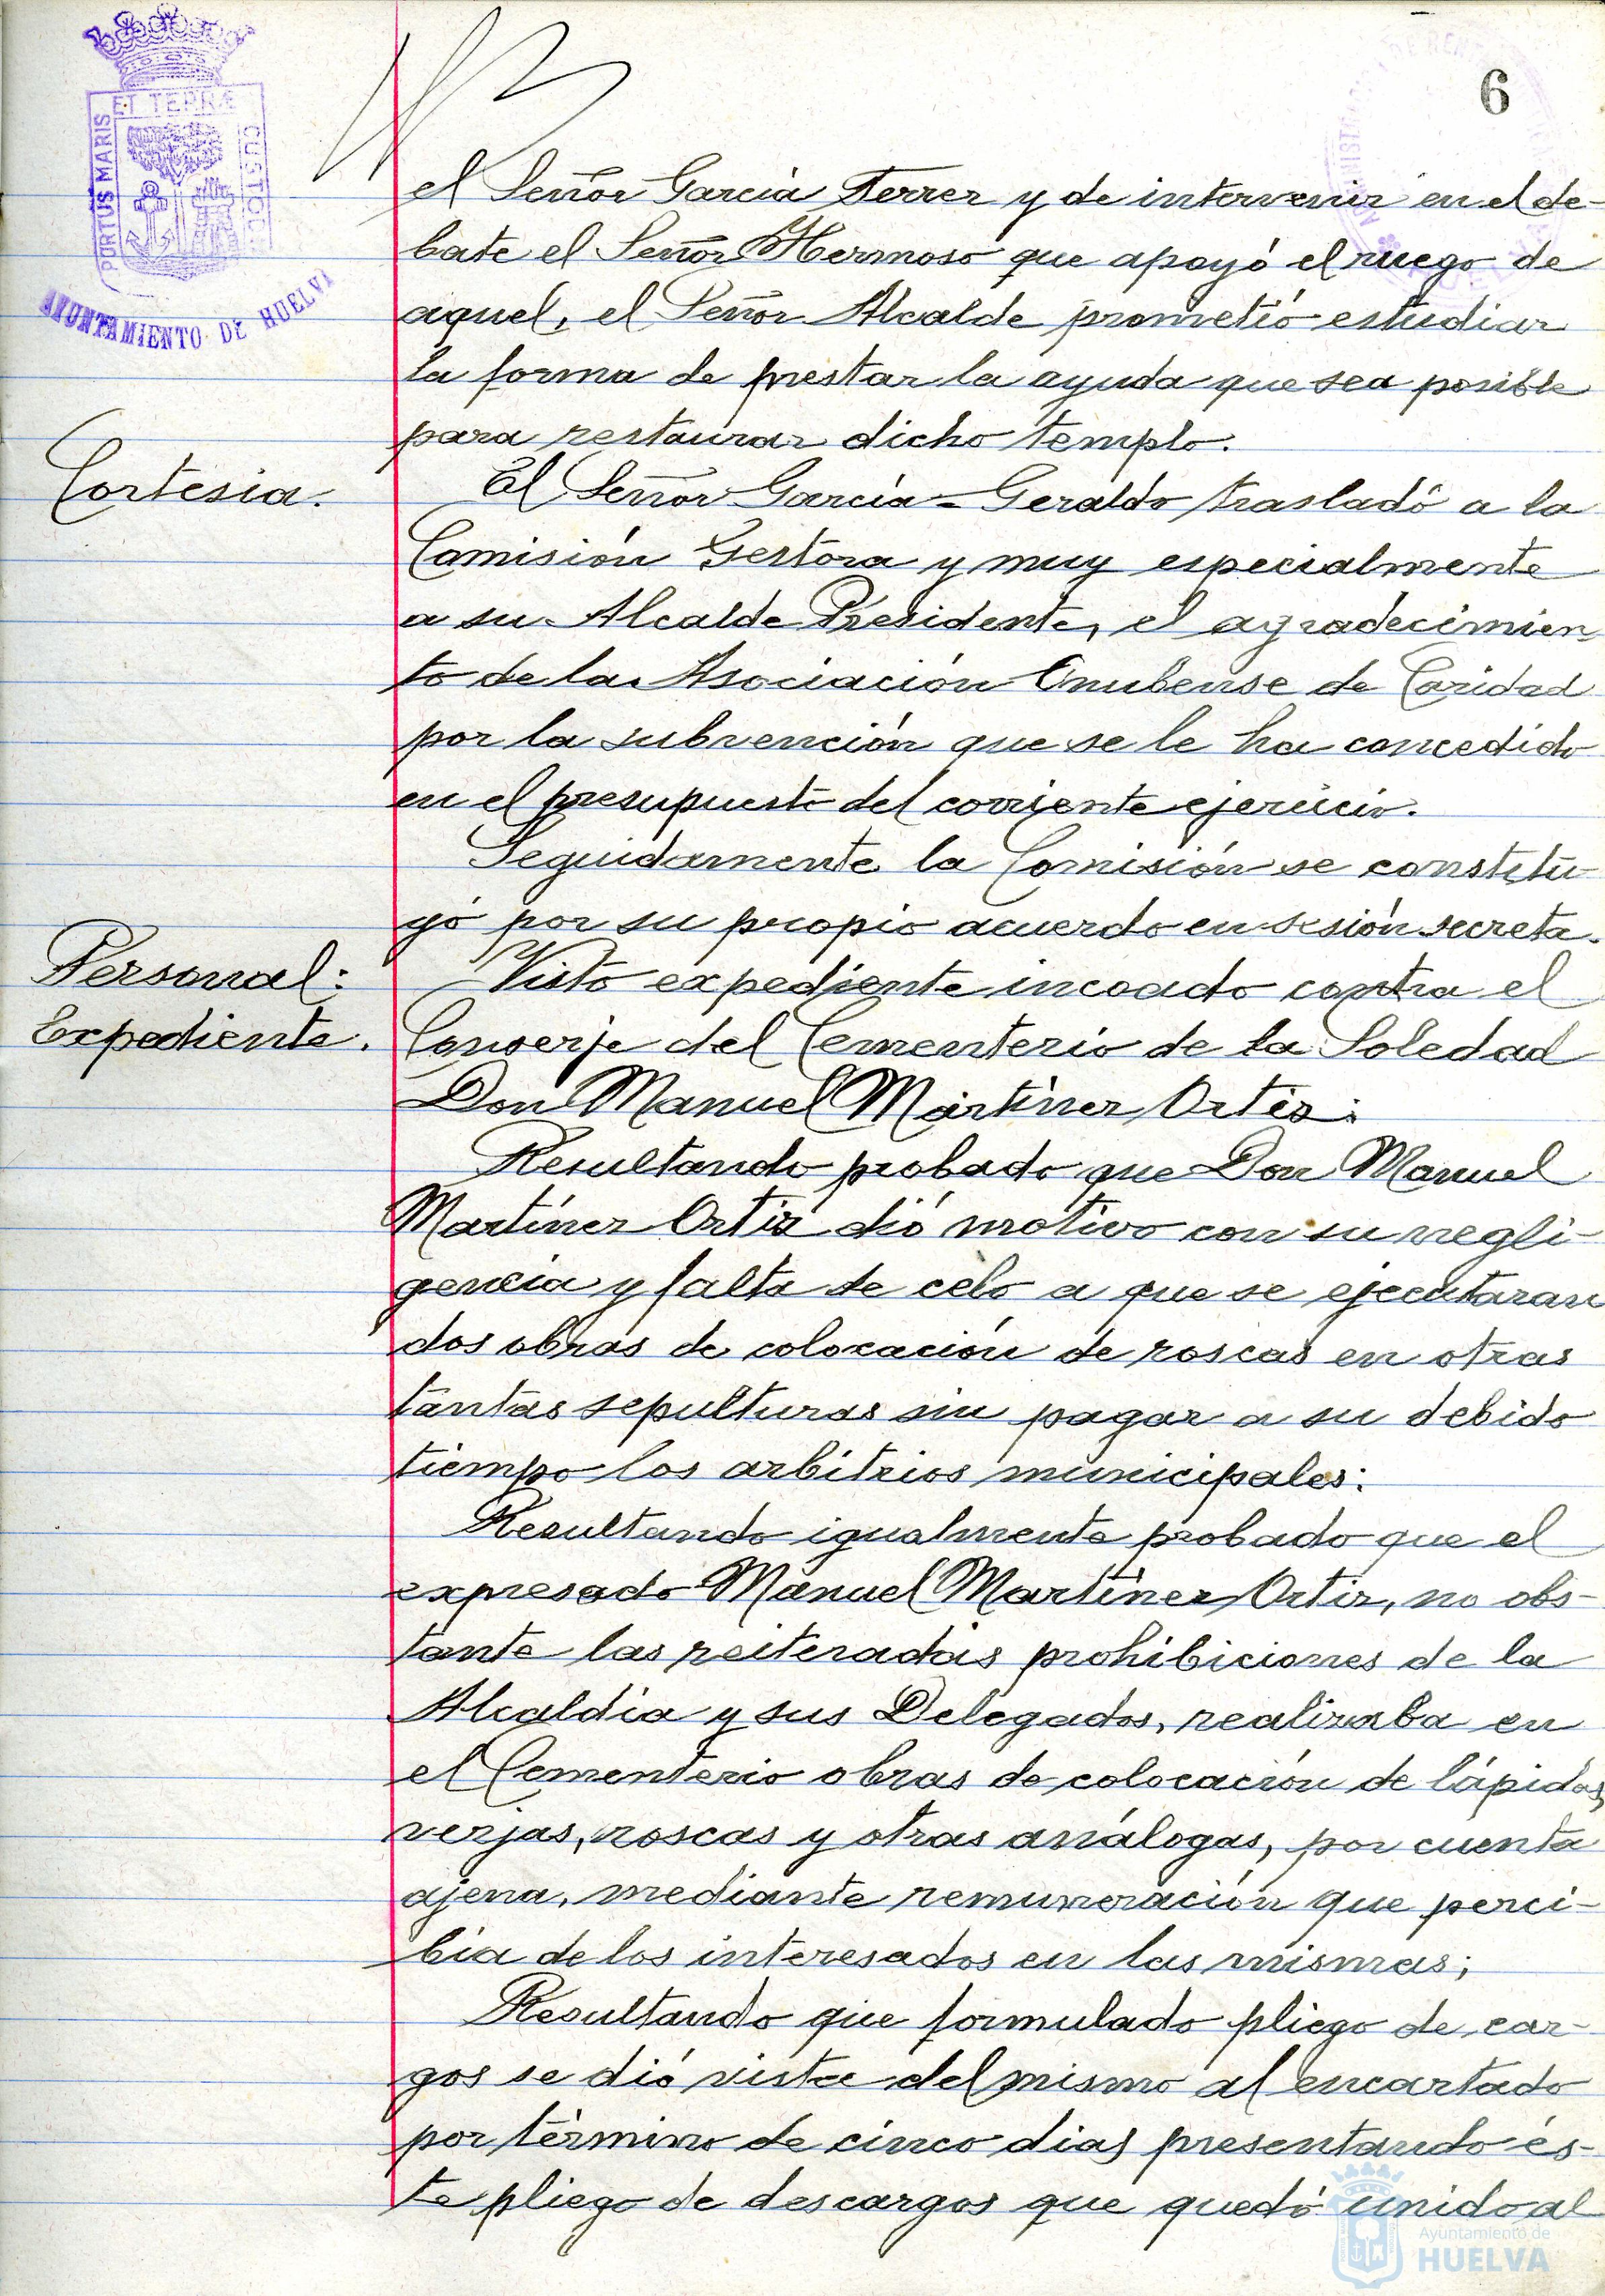 6
ET TERRÆ
PORTUS MARIS
CUSTODIA
AYUNTAMIENTO DE HUELVA
el Señor García Ferrer y de intervenir en el de-
bate el Señor Hermoso que apoyó el ruego de
aquel, el Señor Alcalde prometió estudiar
la forma de prestar la ayuda que sea posible
para restaurar dicho templo.
Cortesia.
El Señor García-Geraldo trasladó a la
Comisión Gestora y muy especialmente
a su Alcalde Presidente, el agradecimien
to de la Asociación Onubense de Caridad
por la subvención que se le ha concedido
en el presupuesto del corriente ejercicio.
Seguidamente la Comisión se constitu-
yó por su propio acuerdo en sesión secreta.
Personal:
Expediente.
Visto expediente incoado contra el
Conserje del Cementerio de la Soledad
Don Manuel Martínez Ortiz:
Resultando probado que Don Manuel
Martínez Ortiz dió motivo con su negli-
gencia y falta de celo a que se ejecutaran
dos obras de colocación de roscas en otras
tantas sepulturas sin pagar a su debido
tiempo los arbitrios municipales:
Resultando igualmente probado que el
expresado Manuel Martínez Ortiz, no obs-
tante las reiteradas prohibiciones de la
Alcaldia y sus Delegados, realizaba en
el Cementerio obras de colocación de lápidas,
verjas, roscas y otras análogas, por cuenta
ajena, mediante remuneración que perci-
bia de los interesados en las mismas;
Resultando que formulado pliego de car-
gos se dió vista del mismo al encartado
por término de cinco dias presentando és-
te pliego de descargos que quedó unido al
Ayuntamiento de
HUELVA